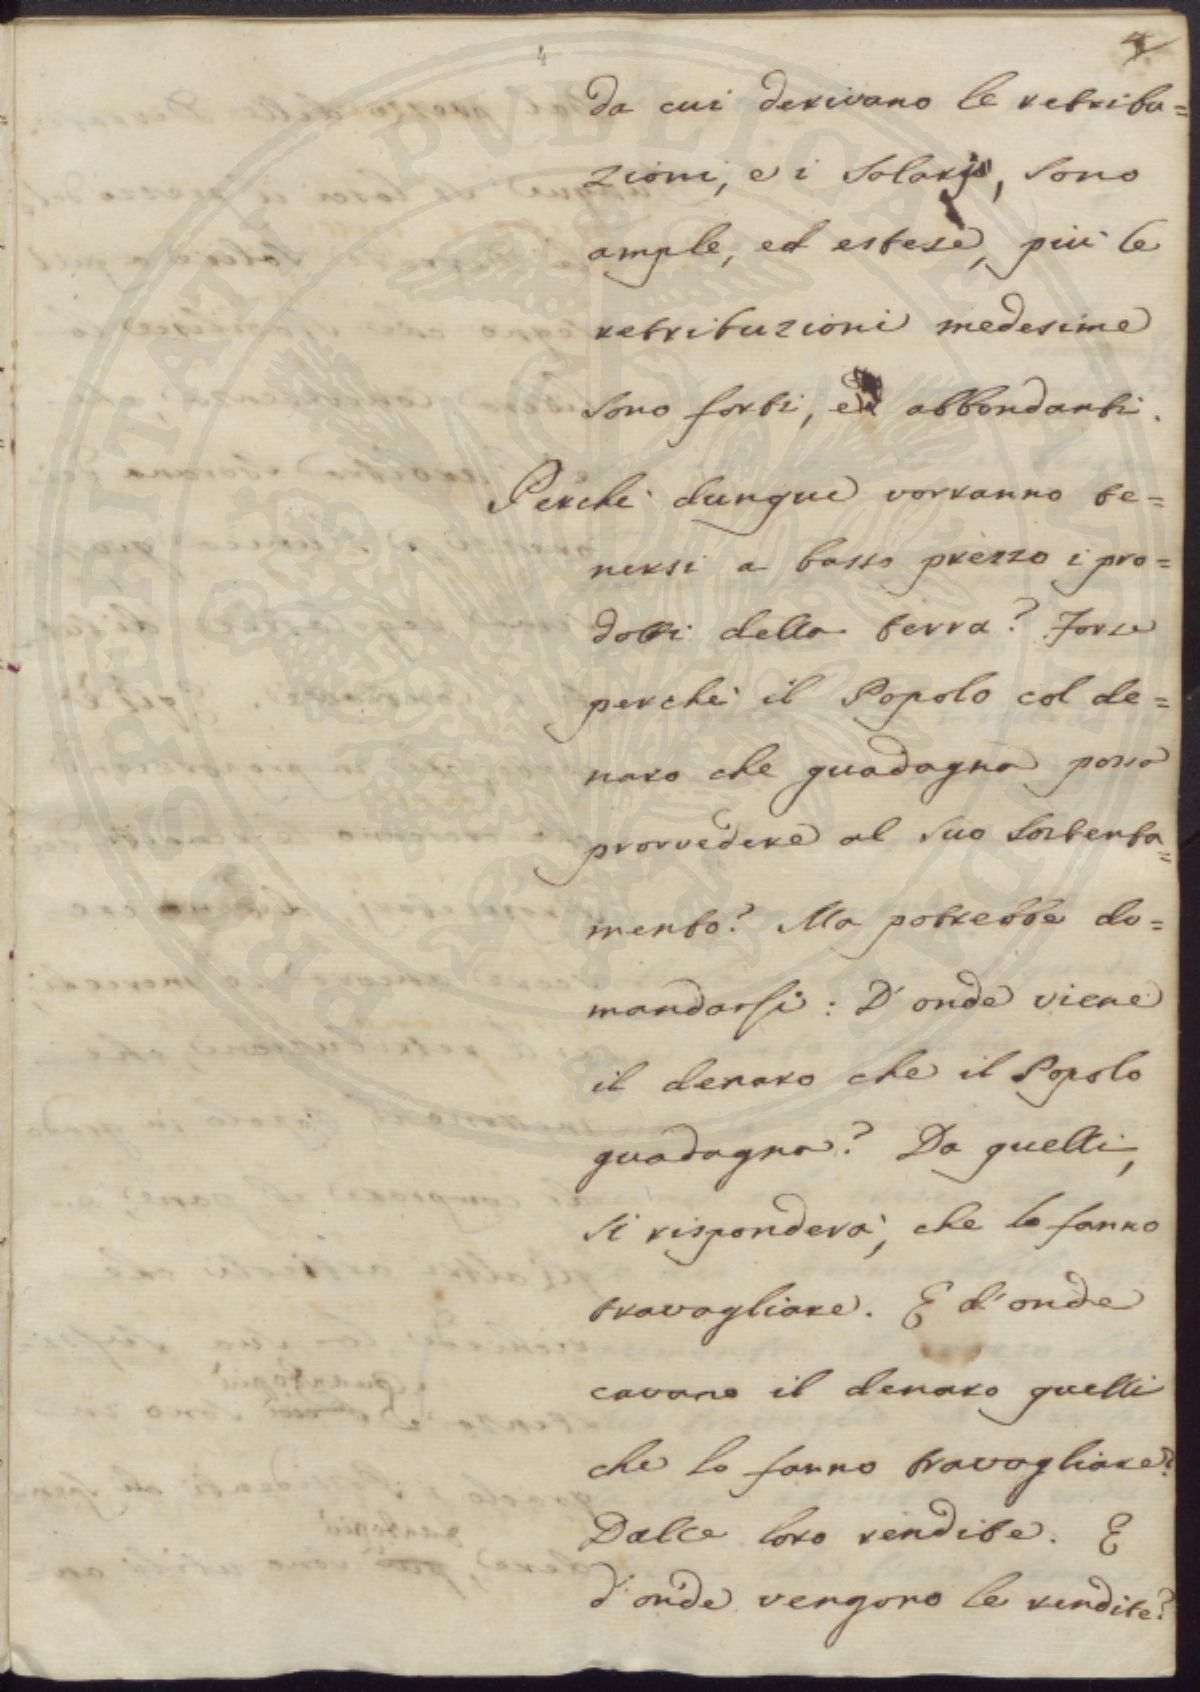 4
4
da cui derivano le retribu=
zioni, e i Salarj, sono
ample, ed estese, più le
retribuzioni medesime
sono forti, ed abbondanti.
Perchè dunque vorranno te=
nersi a basso prezzo i pro=
dotti della terra? Forse
perchè il Popolo col de=
naro che guadagna possa
provvedere al suo sostenta=
mento? Ma potrebbe do=
mandarsi: D'onde viene
il denaro che il Popolo
guadagna? Da quelli,
si risponderà, che lo fanno
travagliare. E d'onde
cavano il denaro quelli
che lo fanno travagliare?
Dalle loro rendite. E
d'onde vengono le rendite?